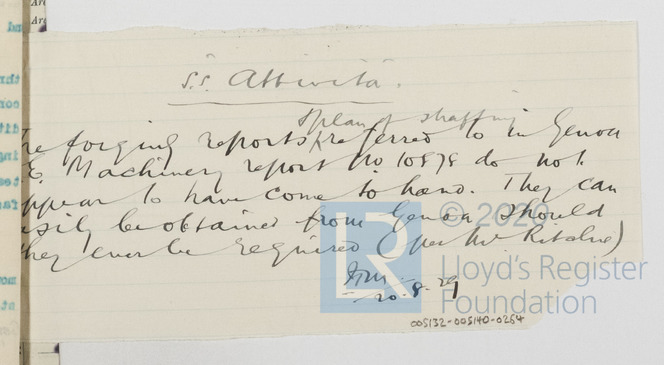 S.S. Attivita.
& plan of shafting
The forging reports referred to in Genoa
E. Machinery report No 10878 do not
appear to have come to hand. They can
easily be obtained from Genoa should
they ever be required (per Mr Ritchie)
20.8.29
005132-005140-0254
© 2020
LR
Lloyd's Register
Foundation